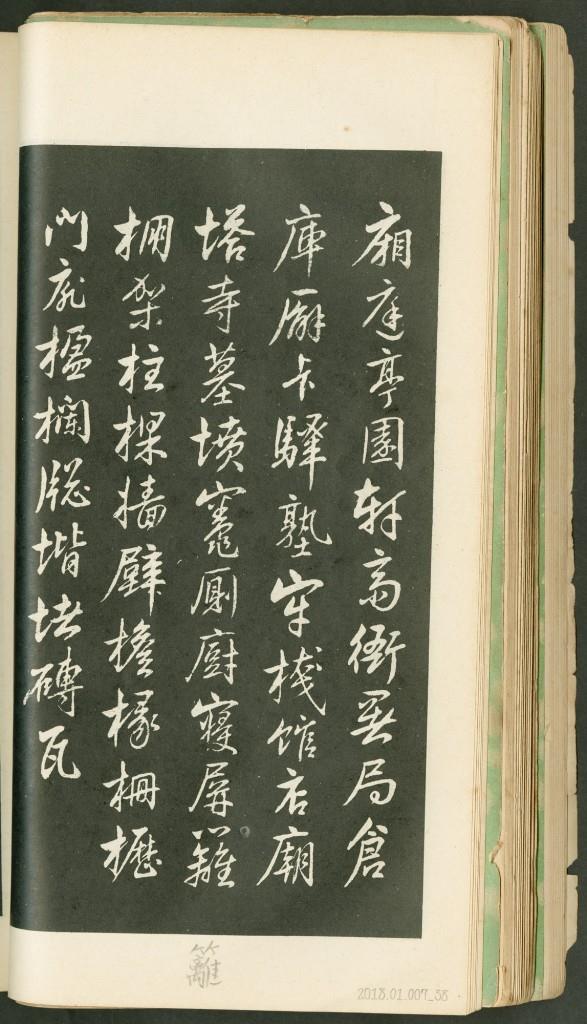 廂庭亭園軒齋衙署局倉
庫廨卡驛塾牢棧館店廟
塔寺墓墳竈厠廚寢屏籬
棚架柱樑墻壁檐椽柵櫪
門扉楹欄牕堦堵磚瓦
籬
2018.01.007_38